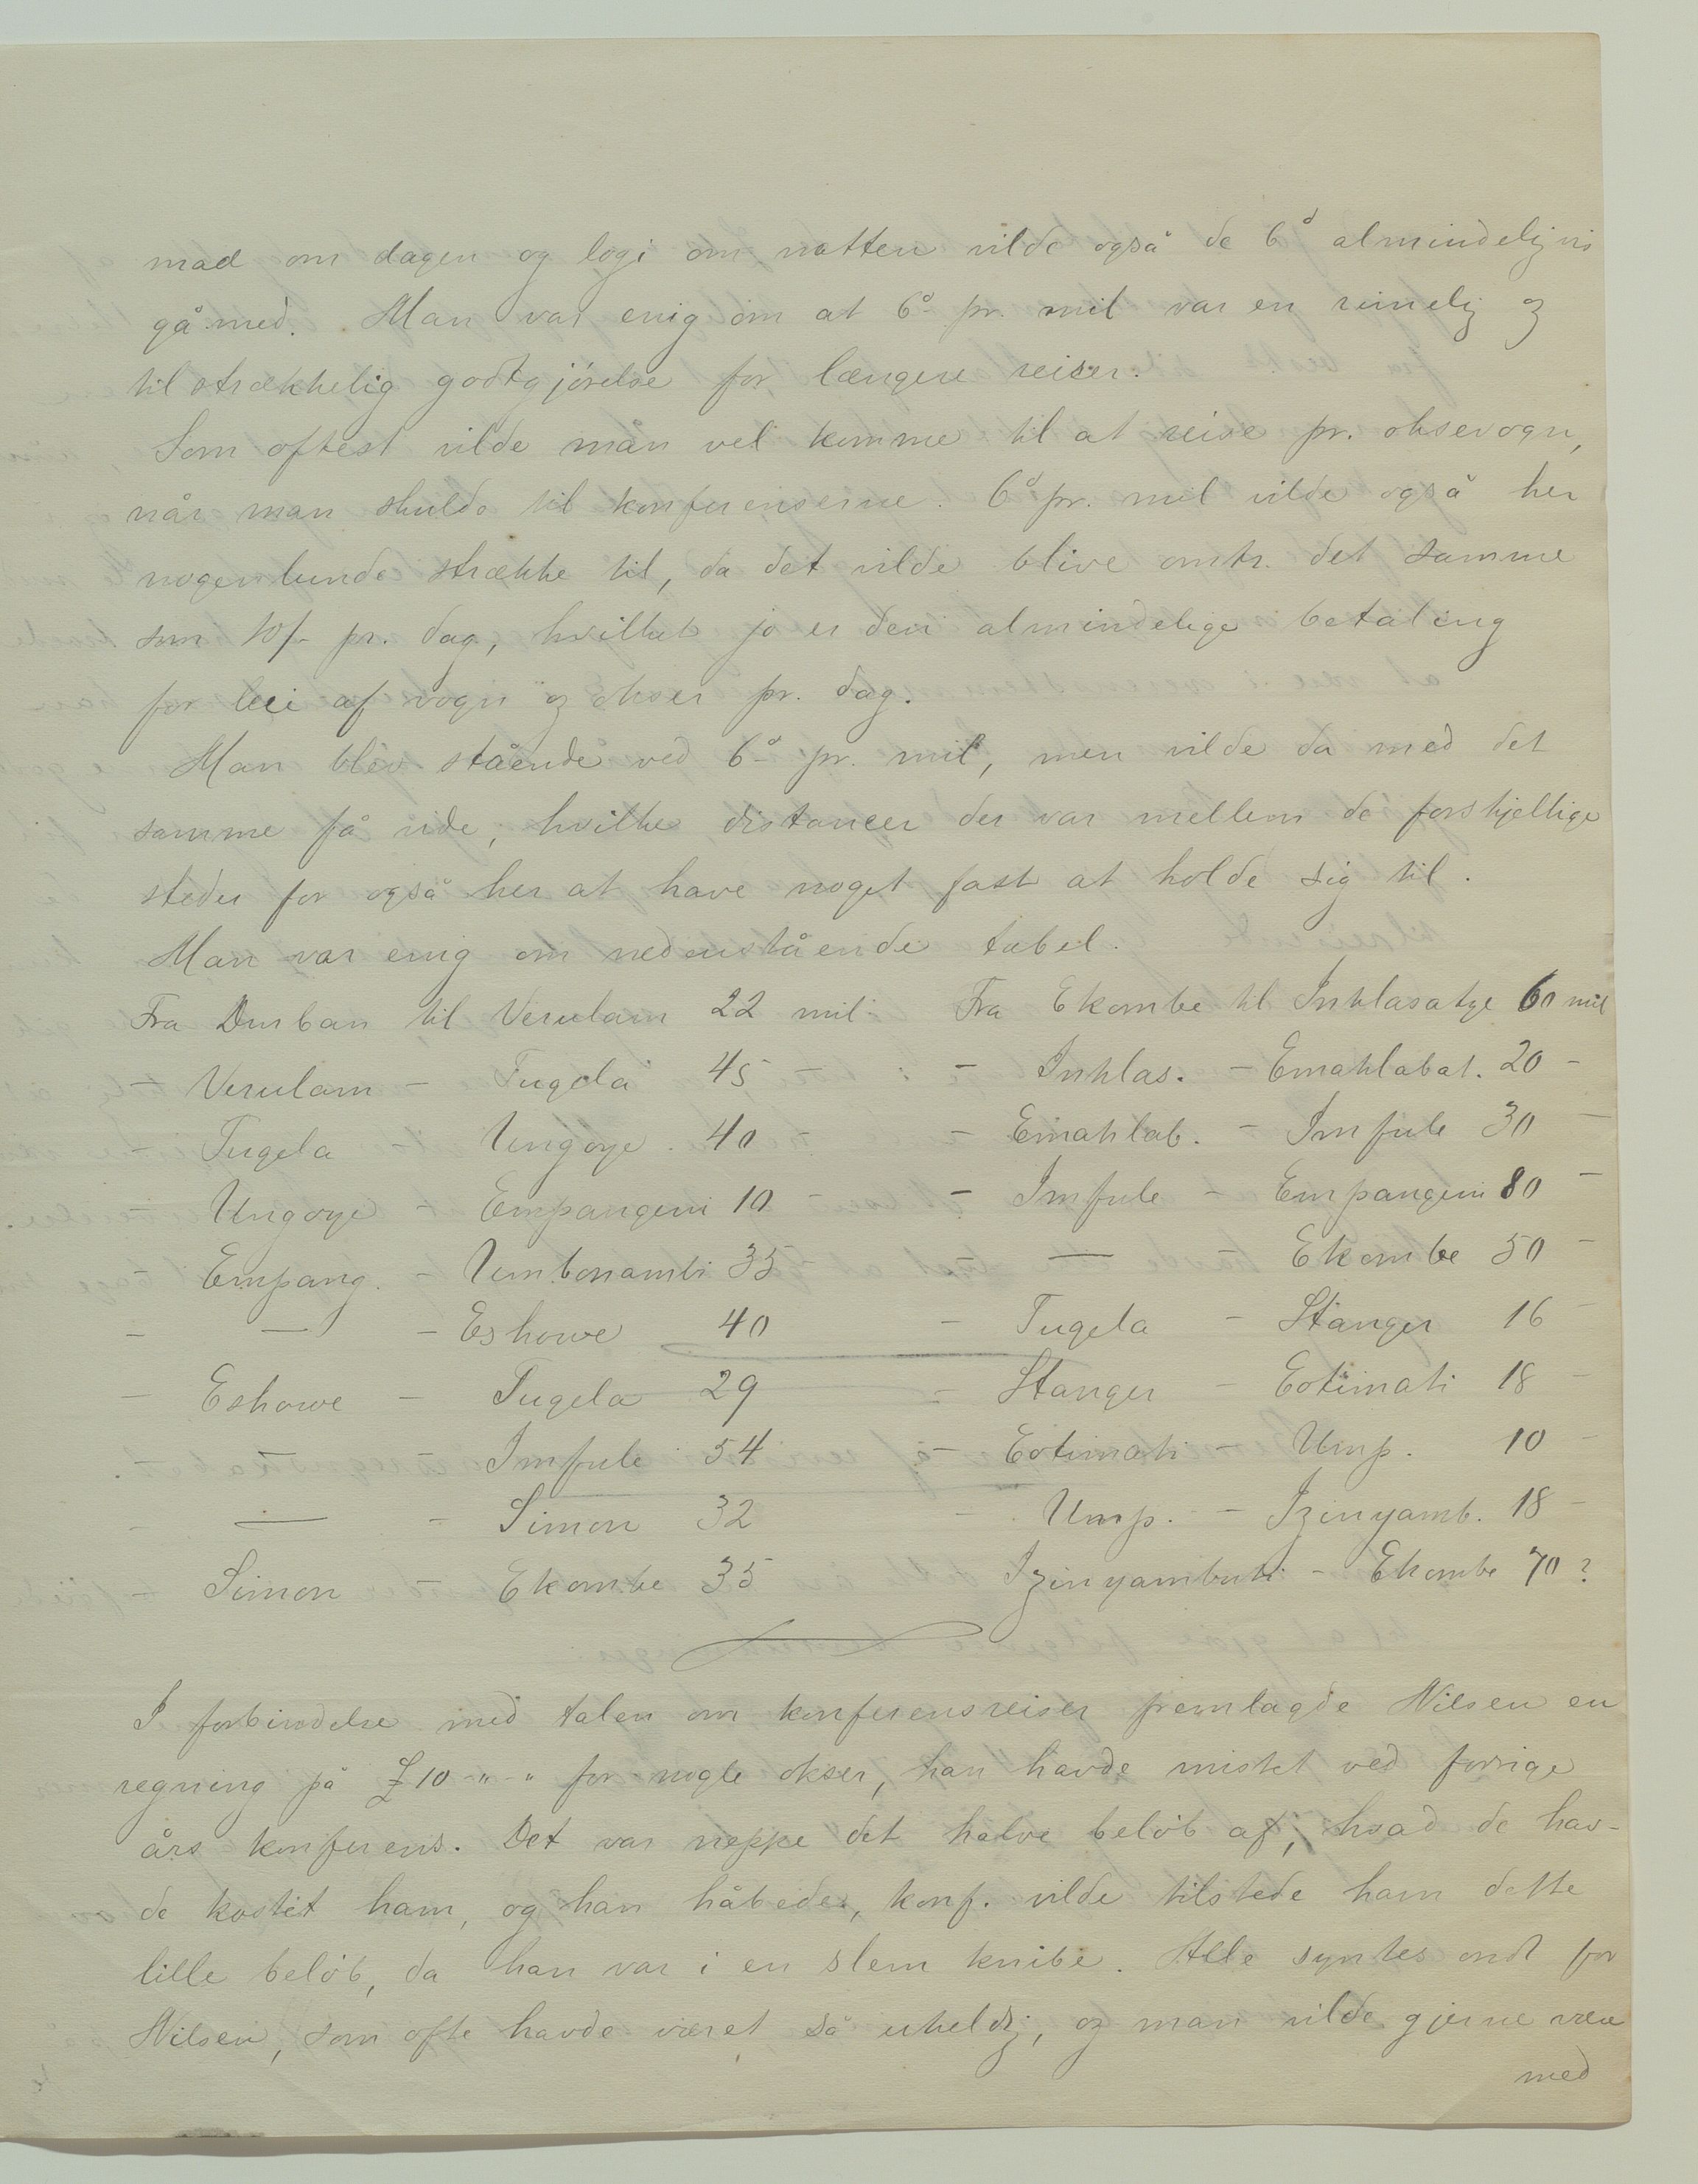 mad om dagen og logi om natten vilde også de 6d almindeligvis
gå med. Man var enig om at 6d pr. mil var en rimelig og
tilstrækkelig godtgjörelse for længere reiser.
Som oftest vilde man vel komme til at reise pr. oksevogn,
når man skulde til konferenserne. 6d pr. mil vilde også her
nogenlunde strække til, da det vilde blive omtr. det samme
som 10/- pr. dag, hvilket jo er den almindelige betaling
for leie af vogn og okser pr. dag.
Man blev stående ved 6d pr. mil, men vilde da med det
samme få vide, hvilke distancer der var mellem de forskjellige
steder for også her at have noget fast at holde sig til.
Man var enig om nedenstående tabel.
Fra Durban til Verulam 22 mil - Fra Ekombe til Inhlasatye 60 mil
- Verulam - Tugela 45 - - Inhlas. - Emahlabat. 20 -
- Tugela Ungoye 40 - - Emahlab. - Imfule 30 -
- Ungoye - Empangeni 10 - - Imfule - Empangeni 80 -
- Empang. - Umbonambi 35 - - — - Ekombe 50 -
- — - Eshowe 40 - Tugela - Stanger 16 -
- Eshowe - Tugela 29 - Stanger - Eotimati 18 -
- — - Imfule 54 - Eotimati - Ump. 10 -
- — - Simon 32 - Ump. - Izinyamb. 18 -
- Simon - Ekombe 35 Izinyambuti - Ekombe 70 ?
I forbindelse med talen om konferensreiser fremlagde Nilsen en
regning på £10-"-" for nogle okser, han havde mistet ved forrige
års konferens. Det var neppe det halve belöb af, hvad de hav-
de kostet ham, og han håbede, konf. vilde tilstede ham dette
lille belöb, da han var i en slem knibe. Alle syntes ondt for
Nilsen, som ofte havde været så uheldig, og man vilde gjerne være
med